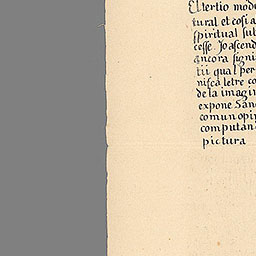 El tertio mod
tural et cosi a
spiritual sub
cesse. Jo ascend
ancora signi
tii qual per
nifcà letre co
de la imagin
expone San
comun opi
computan
pictura